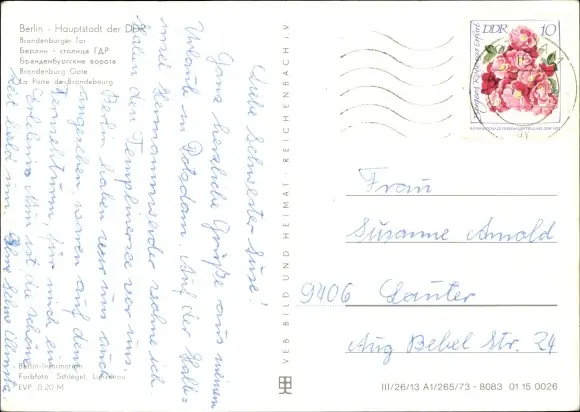 Berlin - Hauptstadt der DDR
Brandenburger Tor
Берлин - столица ГДР
Бранденбургские ворота
Brandenburg Gate
La Porte de Brandebourg
Liebe Schwester Suse!
Ganz herzliche Grüße aus meinem
Urlaub in Potsdam. Auf der Halb=
insel Hermannswerder wohne ich
haben den Templinersee vor uns.
Berlin haben wir uns auch
angesehen, waren auf dem
Fernsehturm, für mich ein
Erlebnis. Nun ist die schöne
Zeit bald um.
Berlin-Information
Farbfoto: Schlegel,
EVP 0,20 M
VEB BILD UND HEIMAT · REICHENBACH i V
DDR
10
INTERNATIONALE ROSENAUSSTELLUNG DDR 1972
Frau
Susanne Arnold
9406 Lauter
Aug Bebel Str. 24
III/26/13 A1/265/73 - 8083 01 15 0026